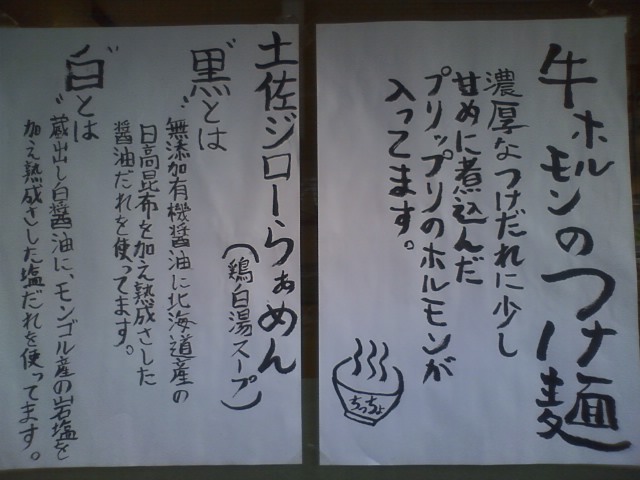 牛ホルモンのつけ麺
濃厚なつけだれに少し
甘めに煮込んだ
プリップリのホルモンが
入ってます。
ちっちょ
土佐ジローらぁめん
(鶏白湯スープ)
"黒"とは
無添加有機醤油に北海道産の
日高昆布を加え熟成さした
醤油だれを使ってます。
"白"とは
蔵出し白醤油に、モンゴル産の岩塩を
加え熟成さした塩だれを使ってます。